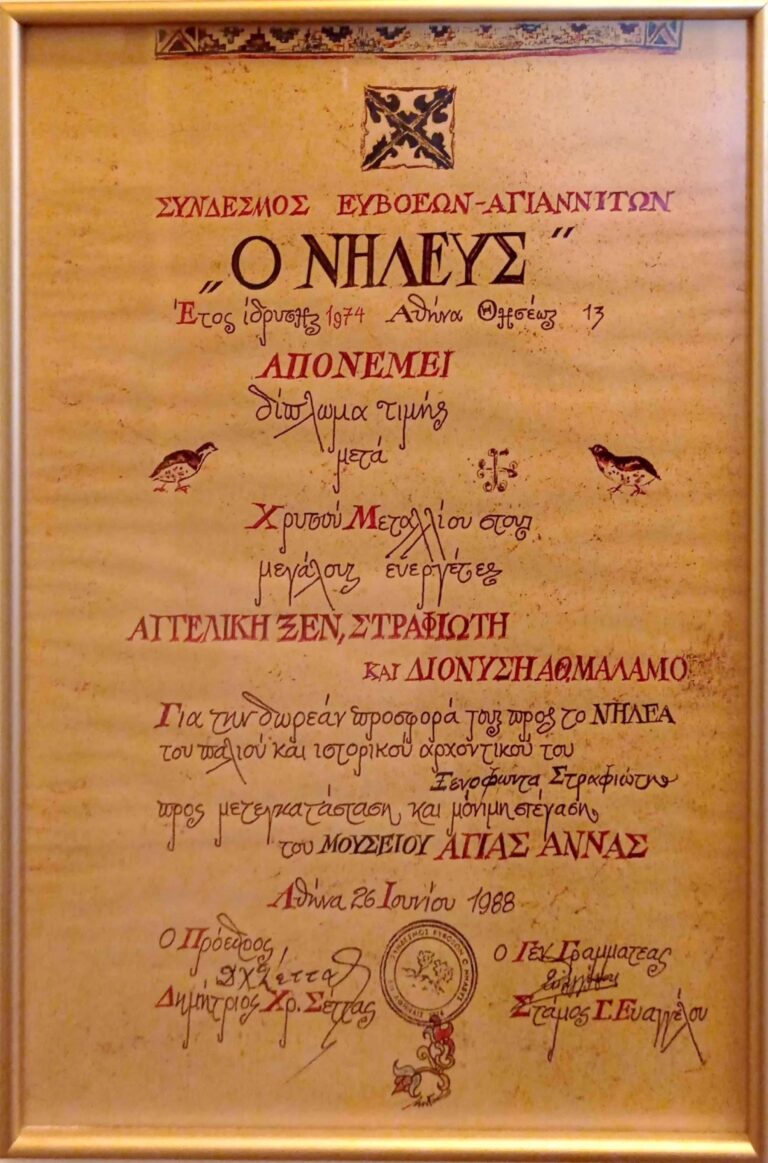 ΣΥΝΔΕΣΜΟΣ ΕΥΒΟΕΩΝ-ΑΓΙΑΝΝΙΤΩΝ
„Ο ΝΗΛΕΥΣ"
Έτος ίδρυσης 1974 Αθήνα Θησέως 13
ΑΠΟΝΕΜΕΙ
δίπλωμα τιμής
μετά
Χρυσού Μεταλλίου στους
μεγάλους ευεργέτες
ΑΓΓΕΛΙΚΗ ΞΕΝ, ΣΤΡΑΦΙΩΤΗ
ΚΑΙ ΔΙΟΝΥΣΗ ΑΘ, ΜΑΛΑΜΟ
Για την δωρεάν προσφορά τους προς το ΝΗΛΕΑ
του παλιού και ιστορικού αρχοντικού του
Ξενοφώντα Στραφιώτη
προς μετεγκατάσταση και μόνιμη στέγαση
του ΜΟΥΣΕΙΟΥ ΑΓΙΑΣ ΑΝΝΑΣ
Αθήνα 26 Ιουνίου 1988
Ο Πρόεδρος
Ο Γεν Γραμματεας
ΔΧΣέττας
Δημήτριος Χρ. Σέττας
Στάμος Γ. Ευαγγέλου